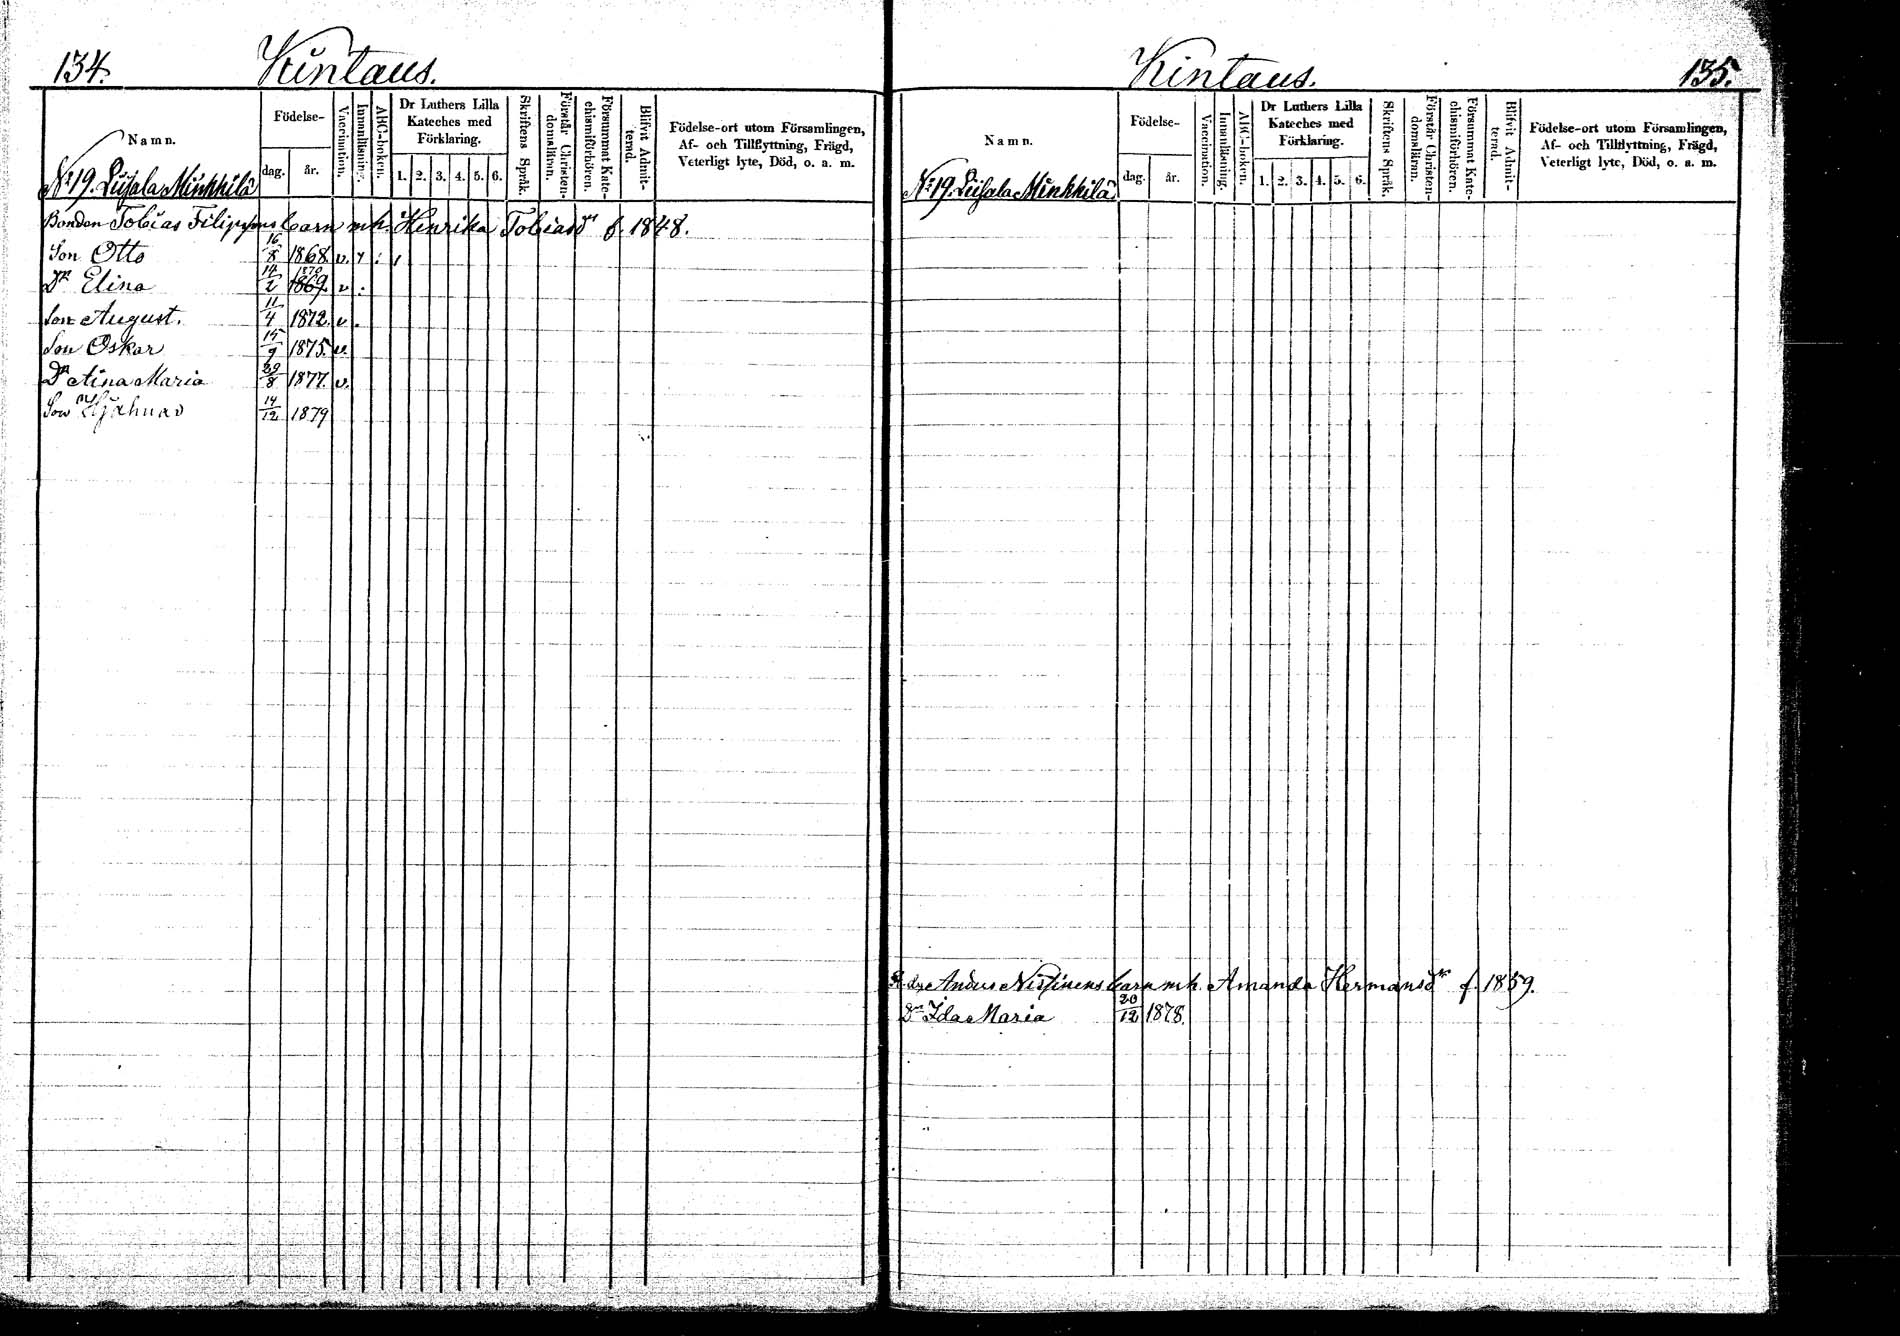 134.
Kintaus.
Namn.
Födelse-
dag.
år.
Vaccination.
Innanläsning.
ABC-boken.
Dr Luthers Lilla
Kateches med
Förklaring.
1. 2. 3. 4. 5. 6.
Skriftens Språk.
Förstår Christen-
domsläran.
Försummat Kate-
chismiförhören.
Blifvit Admit-
terad.
Födelse-ort utom Församlingen,
Af- och Tillflyttning, Frägd,
Veterligt lyte, Död, o. a. m.
No 19. Minkkilä
Bonden Tobias Filippsons barn mh. Henrika Tobiasdr f. 1848.
Son Otto 16/8 1868. v.
Dr Elina 14/2 1870 1869. v
Son August. 11/4 1872. v.
Son Oskar 15/9 1875. v.
Dr Aina Maria 29/8 1877. v.
Son 14/12 1879
Kintaus.
135.
Namn.
Födelse-
dag.
år.
Vaccination.
Innanläsning.
ABC-boken.
Dr Luthers Lilla
Kateches med
Förklaring.
1. 2. 3. 4. 5. 6.
Skriftens Språk.
Förstår Christen-
domsläran.
Försummat Kate-
chismiförhören.
Blifvit Admit-
terad.
Födelse-ort utom Församlingen,
Af- och Tillflyttning, Frägd,
Veterligt lyte, Död, o. a. m.
No 19. Minkkilä
Nissinens barn mh. Amanda Hermansdr f. 1859.
Dr Ida Maria 20/12 1878.